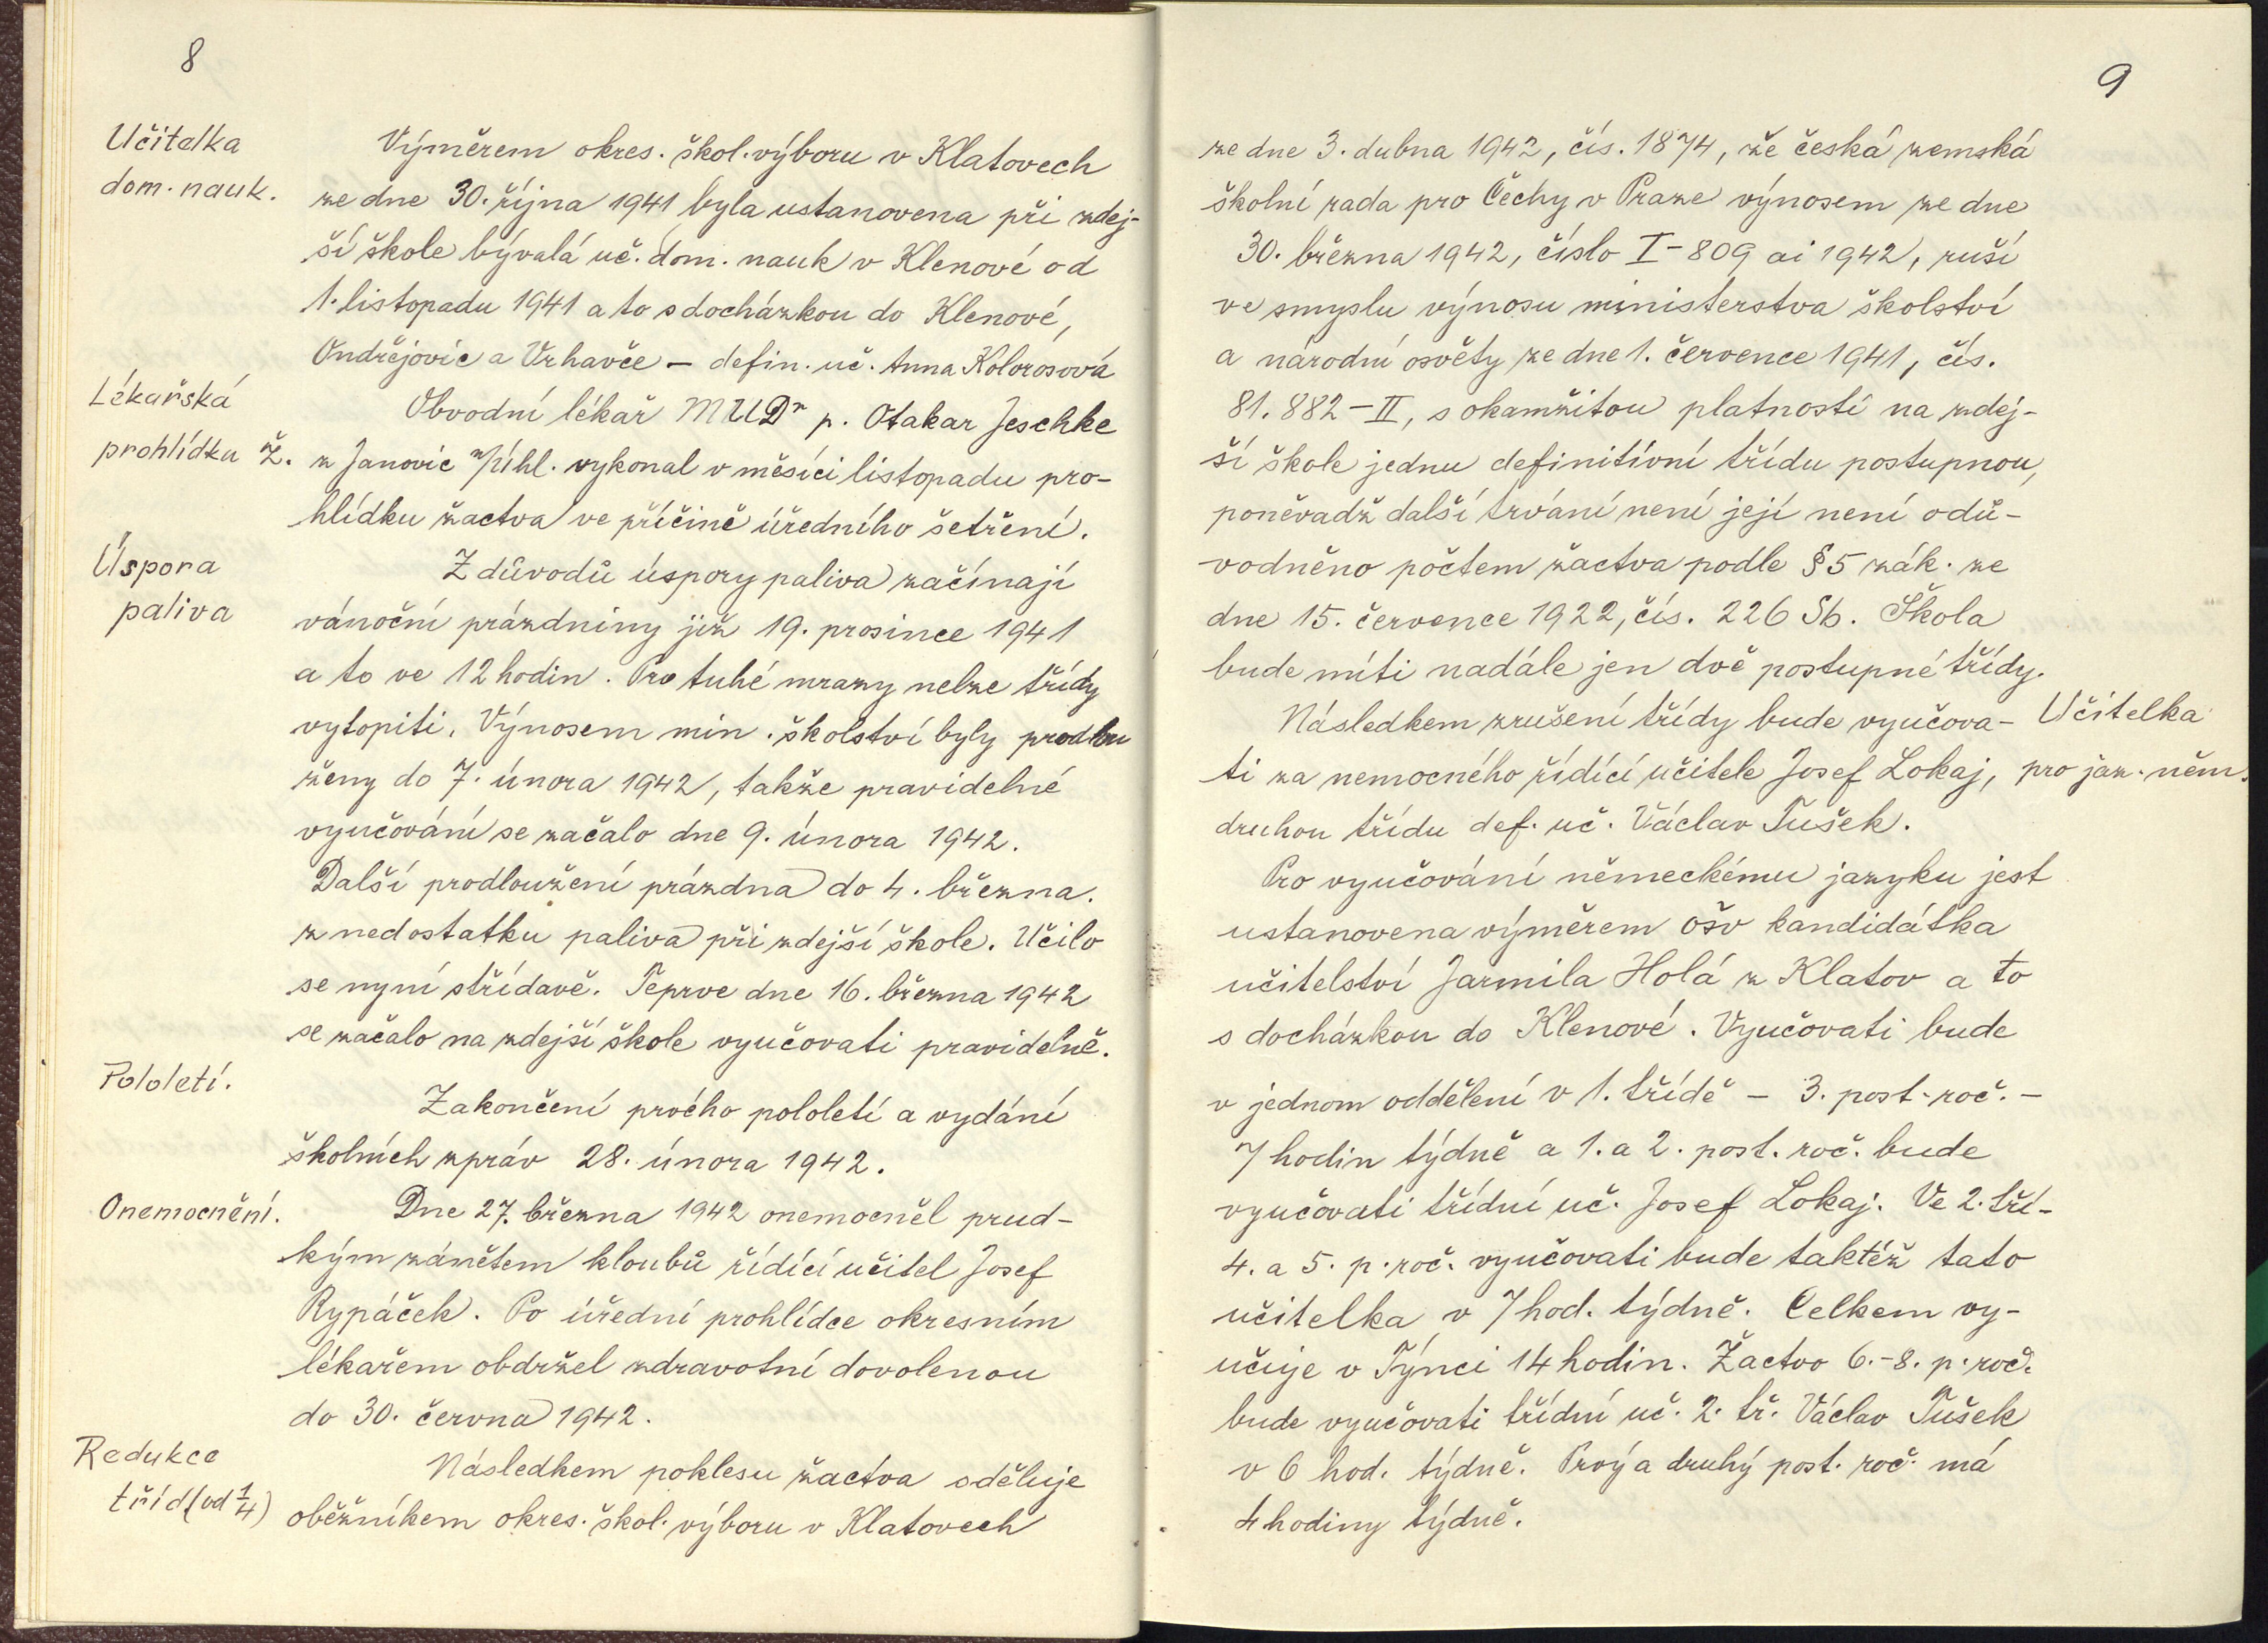 8
Učitelka
dom. nauk.
Výměrem okres. škol. výboru v Klatovech
ze dne 30. října 1941 byla ustanovena při zdej-
ší škole bývalá uč. dom. nauk v Klenové od
1. listopadu 1941 a to s docházkou do Klenové,
Ondřejovic a Vrhavče – defin. uč. Anna Kolorosová
Lékařská
prohlídka ž.
Obvodní lékař MUDr p. Otakar Jeschke
z Janovic n/Úhl. vykonal v měsíci listopadu pro-
hlídku žactva ve příčině úředního šetření.
Úspora
paliva
Z důvodů úspory paliva začínají
vánoční prázdniny již 19. prosince 1941
a to ve 12 hodin. Pro tuhé mrazy nelze třídy
vytopiti. Výnosem min. školství byly prodlou
ženy do 7. února 1942, takže pravidelné
vyučování se začalo dne 9. února 1942.
Další prodloužení prázdna do 4. března.
z nedostatku paliva při zdejší škole. Učilo
se nyní střídavě. Teprve dne 16. března 1942
se začalo na zdejší škole vyučovati pravidelně.
Pololetí.
Zakončení prvého pololetí a vydání
školních zpráv 28. února 1942.
Onemocnění.
Dne 27. března 1942 onemocněl prud-
kým zánětem kloubů řídící učitel Josef
Rypáček. Po úřední prohlídce okresním
lékařem obdržel zdravotní dovolenou
do 30. června 1942.
Redukce
tříd (od 1/4)
Následkem poklesu žactva sděluje
oběžníkem okres. škol. výboru v Klatovech
9
ze dne 3. dubna 1942, čís. 1874, že česká zemská
školní rada pro Čechy v Praze výnosem ze dne
30. března 1942, číslo I-809 ai 1942, ruší
ve smyslu výnosu ministerstva školství
a národní osvěty ze dne 1. července 1941, čís.
81.882-II, s okamžitou platností na zdej-
ší škole jednu definitívní třídu postupnou,
poněvadž další trvání není její není odů-
vodněno počtem žactva podle § 5 zák. ze
dne 15. července 1922, čís. 226 Sb. Škola
bude míti nadále jen dvě postupné třídy.
Následkem zrušení třídy bude vyučova-
ti za nemocného řídící učitele Josef Lokaj,
druhou třídu def. uč. Václav Tušek.
Učitelka
pro jaz. něm.
Pro vyučování německému jazyku jest
ustanovena výměrem ošv kandidátka
učitelství Jarmila Holá z Klatov a to
s docházkou do Klenové. Vyučovati bude
v jednom oddělení v 1. třídě – 3. post. roč. –
7 hodin týdně a 1. a 2. post. roč. bude
vyučovati třídní uč. Josef Lokaj. Ve 2. tří-
4. a 5. p. roč. vyučovati bude taktéž tato
učitelka v 7 hod. týdně. Celkem vy-
učuje v Týnci 14 hodin. Žactvo 6.-8. p. roč.
bude vyučovati třídní uč. 2. tř. Václav Tušek
v 6 hod. týdně. Prvý a druhý post. roč. má
4 hodiny týdně.